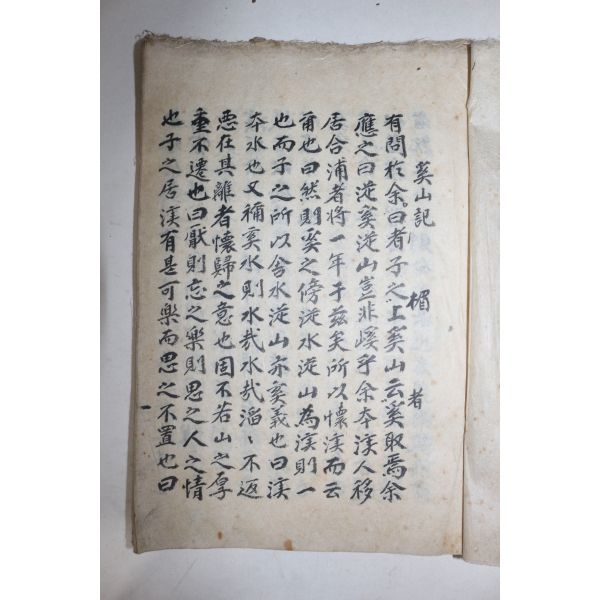 奚山記
楣 者
有問於余曰者子之上奚山云奚取焉余
應之曰從奚從山豈非嵠乎余本溪人移
居合浦者將一年于玆矣所以懷溪而云
爾也曰然則奚之傍從水從山為溪則一
也而子之所以舍水從山亦奚義也曰溪
本水也又稱奚水則水哉水哉滔〻不返
惡在其離者懷歸之意也固不若山之厚
重不遷也曰厭則忘之樂則思之人之情
也子之居溪有是可樂而思之不置也曰